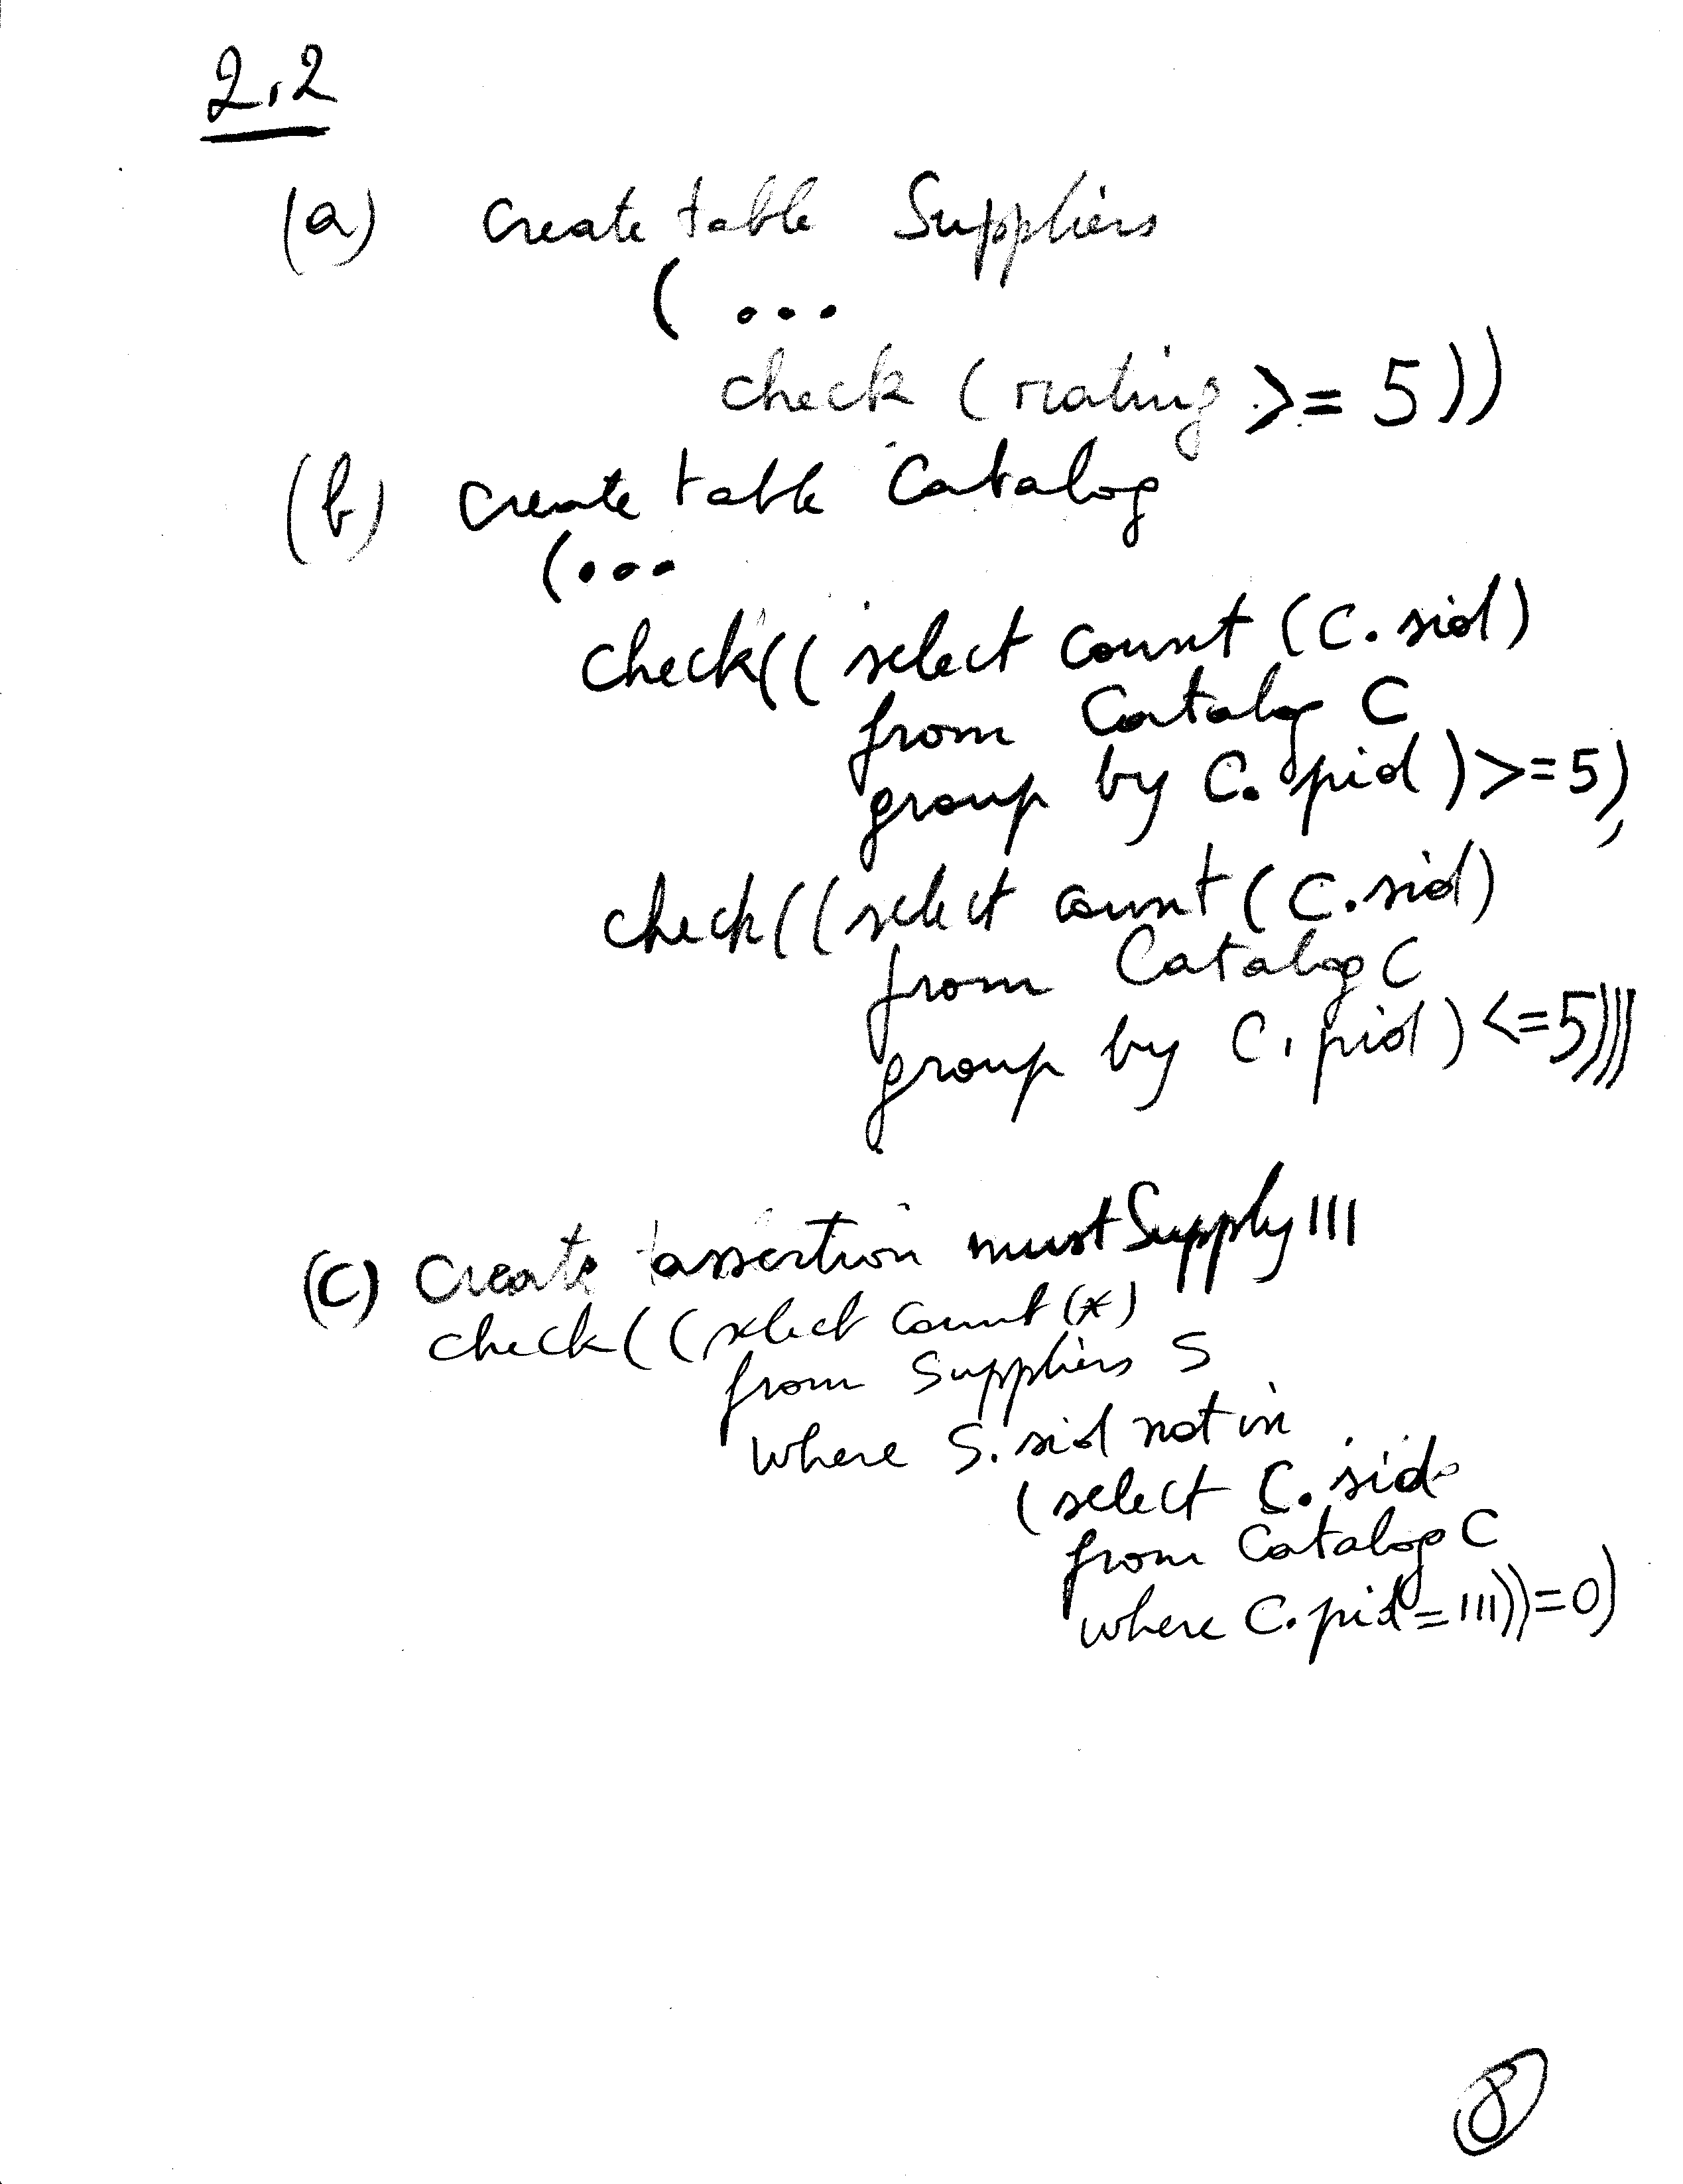 2.2
(a) Create table Suppliers
( ...
check (rating >= 5))
(b) Create table Catalog
(...
check(( select count (C.sid)
from Catalog C
group by C.pid) >= 5),
check((select count (C.sid)
from Catalog C
group by C.pid) <= 5)))
(c) Create assertion mustSupply111
check((select count (*)
from Suppliers S
where S.sid not in
(select C.sid
from Catalog C
where C.pid = 111)) = 0)
8